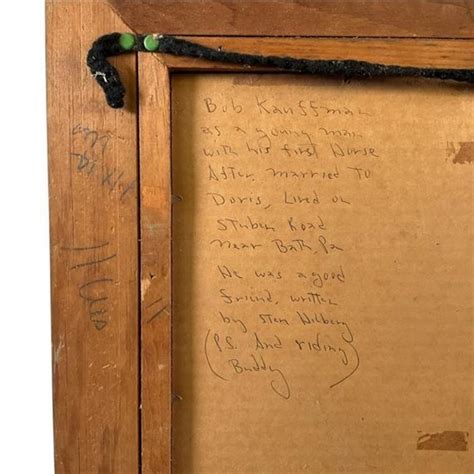 Bob Kauffman
as a young man
with his first Horse
After, married To
Doris, Lived on
Stuben Road
near Bath, Pa
He was a good
friend, written
by Stan
(P.S. And riding
Buddy)